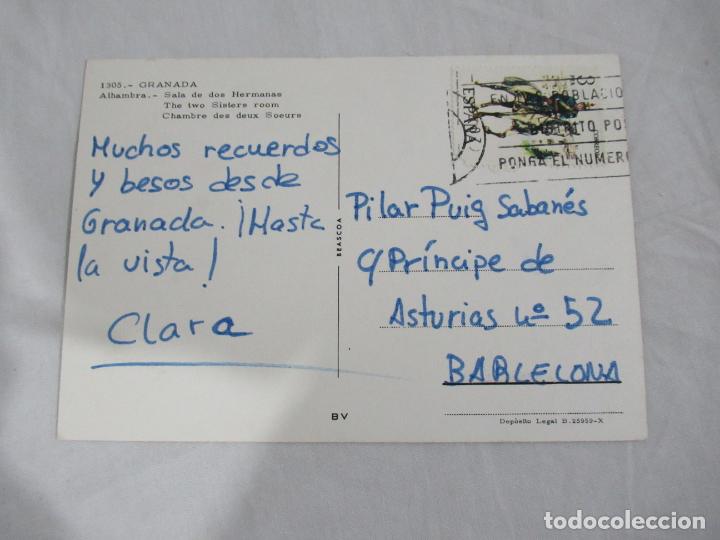 1305.- GRANADA
Alhambra.- Sala de dos Hermanas
The two Sisters room
Chambre des deux Soeurs
Muchos recuerdos
y besos desde
Granada. ¡Hasta
la vista!
Clara
BEASCOA
BV
ESPAÑA
CORREOS
EN POBLACIO
DISTRITO POS
PONGA EL NUMERO
Pilar Puig Sabanés
C/ Príncipe de
Asturias nº 52
BARCELONA
Depósito Legal B.25959-X
todocoleccion.net